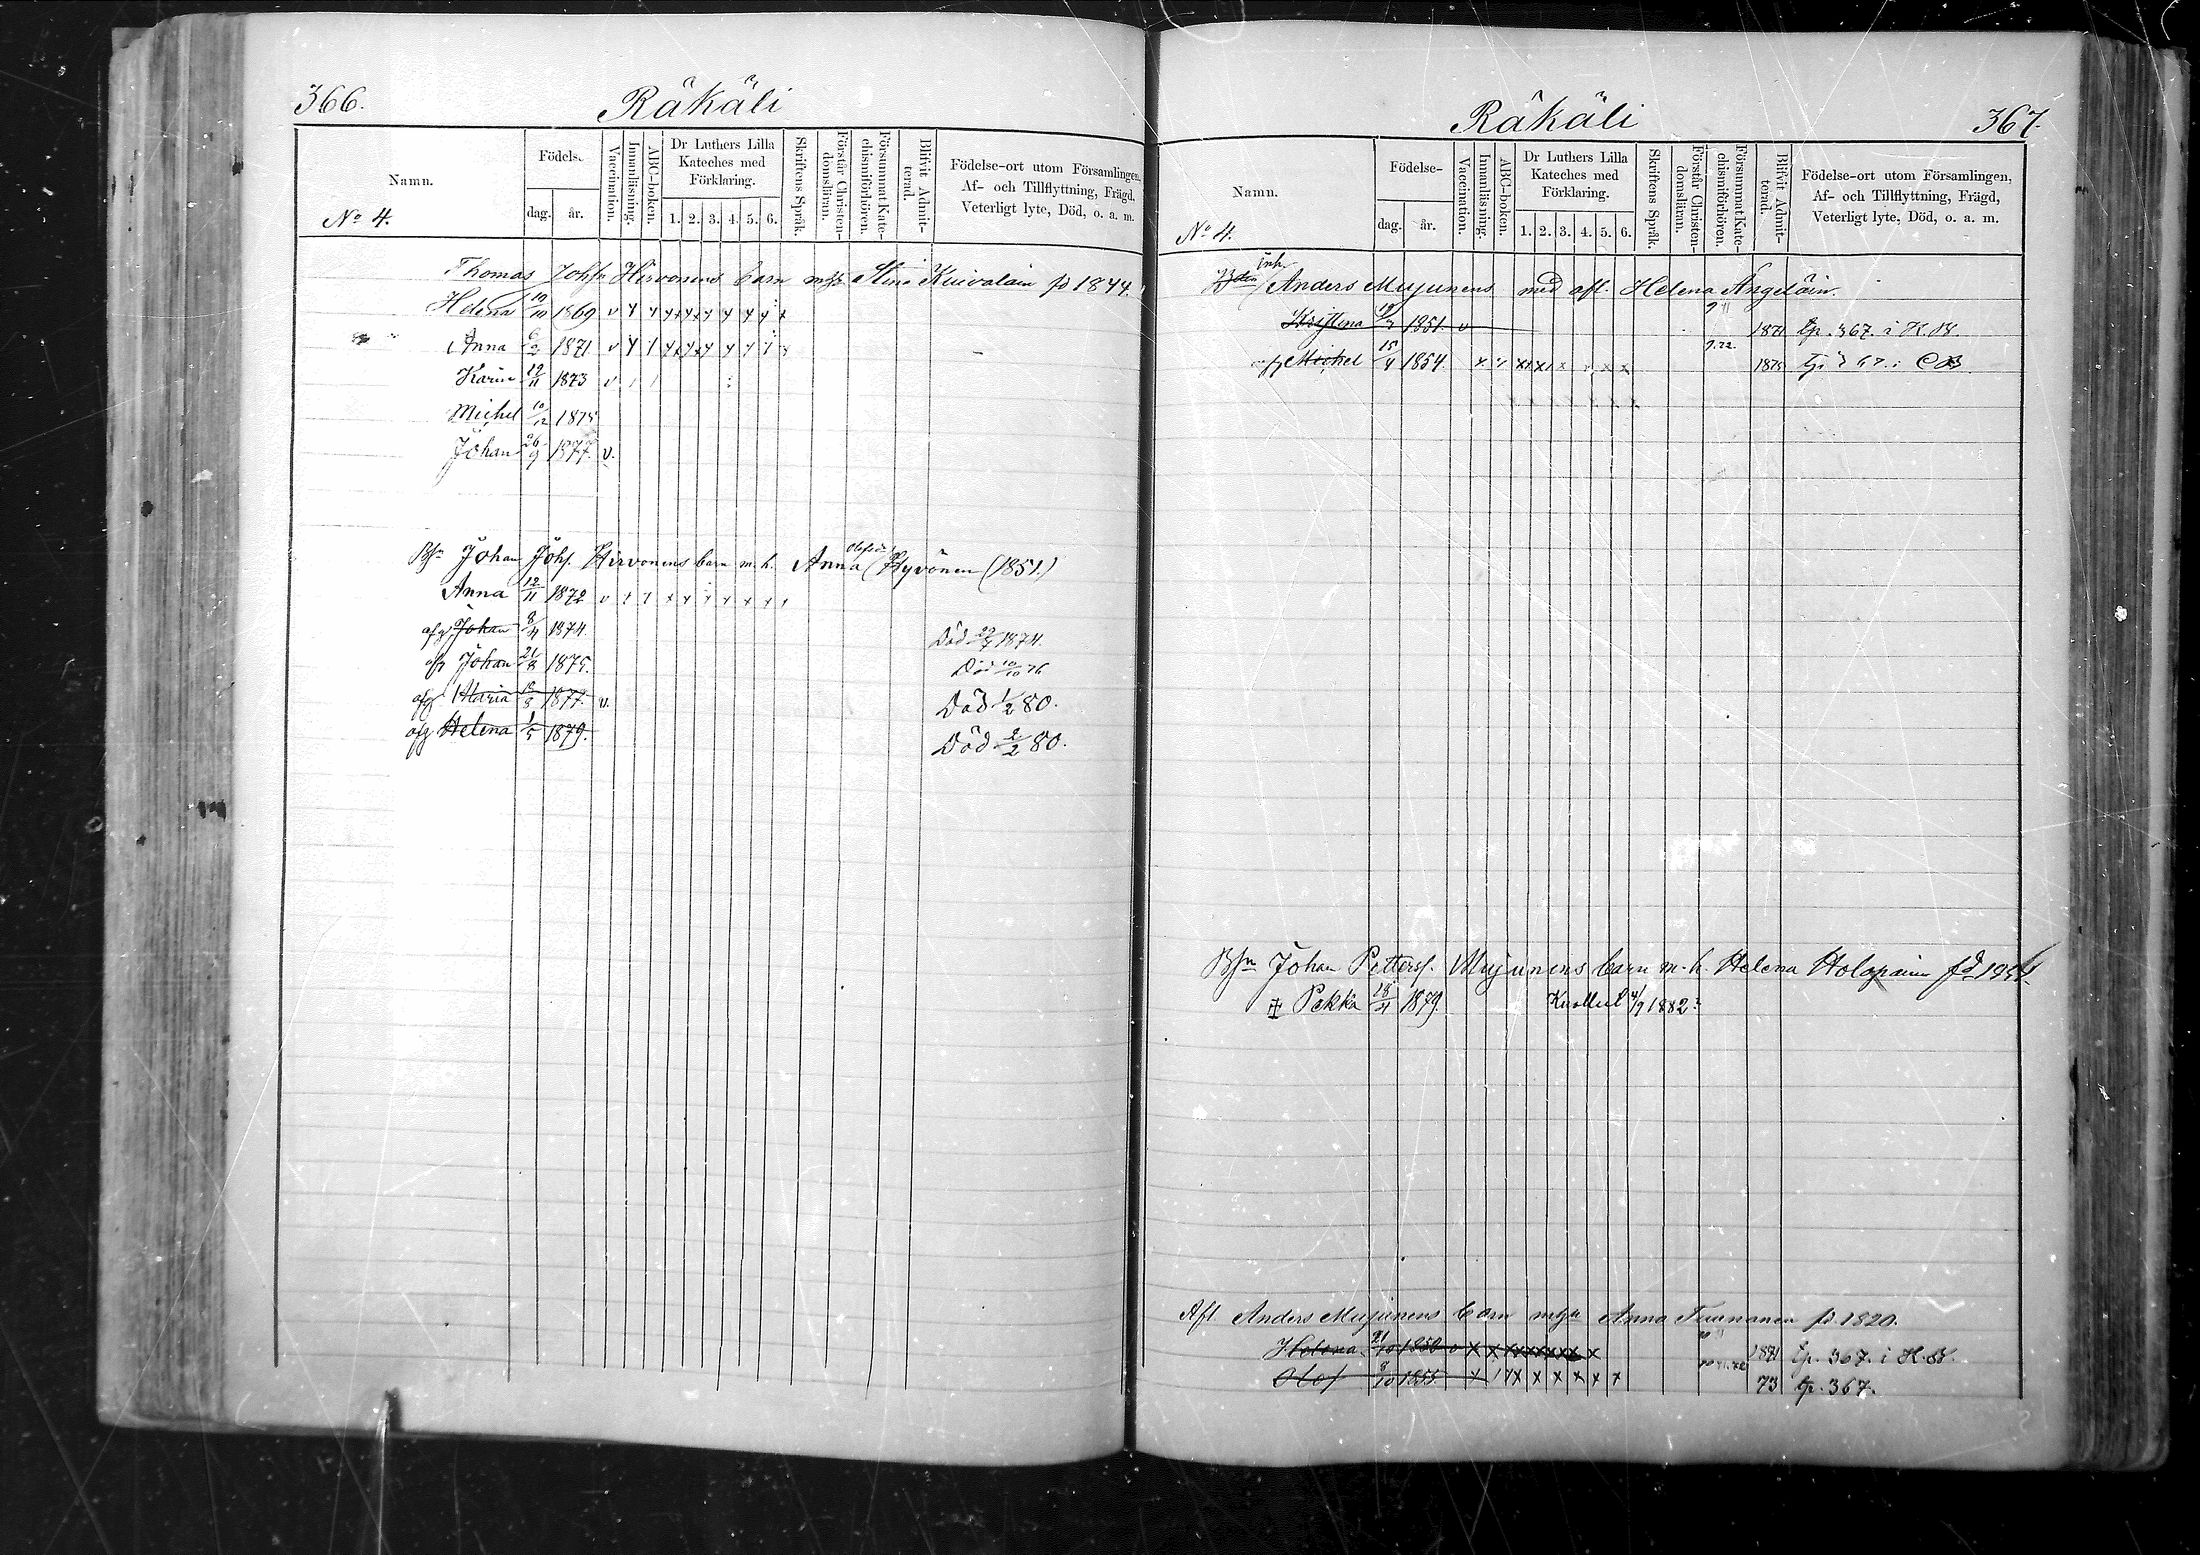 366.
Räkäli
Namn.
Födelse-
dag. år.
Vaccination.
Innanläsning.
ABC-boken.
Dr Luthers Lilla Kateches med Förklaring.
1. 2. 3. 4. 5. 6.
Skriftens Språk.
Förstår Christendomsläran.
Försummat Katechismiförhören.
Blifvit Admitterad.
Födelse-ort utom Församlingen,
Af- och Tillflyttning, Frägd,
Veterligt lyte, Död, o. a. m.
No 4.
Thomas Johsn Hirvonens barn Stina Kuivalain 1844.
Helena 10/10 1869 v
Anna 6/2 1871 v
Karin 12/11 1873 v
Michel 10/12 1875
Johan 26/9 1877. v.
Bsn Johan Johs. Hirvonens barn m. h. Anna Olofsdr Hyvönen (1851.)
Anna 12/11 1872 v
afg Johan 8/4 1874. Död 1874.
afg Johan 21/8 1875. Död 10/10 76
afg Maria 1877. v. Död 1/2 80.
afg Helena 1/5 1879. Död 2/2 80.
Räkäli
367.
Namn.
Födelse-
dag. år.
Vaccination.
Innanläsning.
ABC-boken.
Dr Luthers Lilla Kateches med Förklaring.
1. 2. 3. 4. 5. 6.
Skriftens Språk.
Förstår Christendomsläran.
Försummat Katechismiförhören.
Blifvit Admitterad.
Födelse-ort utom Församlingen,
Af- och Tillflyttning, Frägd,
Veterligt lyte, Död, o. a. m.
No 4.
inh. Anders Mujunens med afl. Helena Ängeläin.
Kristina 1851. v 1871 tp. 367. i K. B.
Michel 15/4 1854. x x x x
Bsn Johan Petterss. Mujunens barn m. h. Helena Holopainen
Pekka 18/4 1879. Kuollut 4/9 1882.
Afl Anders Mujunens barn Anna Tuunanen 1820.
Helena 21/10 1850 v x x x x x x x x 1871 tp. 367. i K. B.
Olof 8/10 1855. x x x x x x 73 tp. 367.